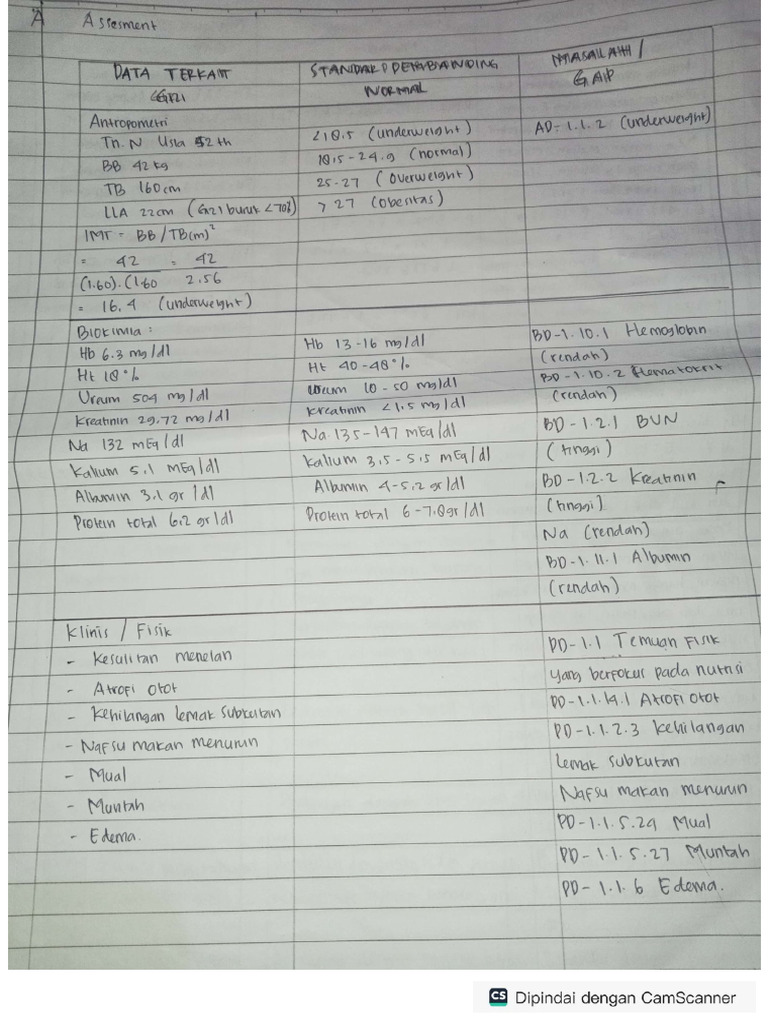 A Assesment
DATA TERKAIT GIZI
STANDARD PEMBANDING NORMAL
MASALAH / GAP
Antropometri
Tn. N Usia 52 th
BB 42 kg
TB 160 cm
LLA 22cm (Gizi buruk <70%)
IMT = BB / TB(m)²
= 42 = 42
(1.60).(1.60 2.56
= 16,4 (underweight)
<18.5 (underweight)
18,5 - 24.9 (normal)
25-27 (Overweight)
> 27 (Obesitas)
AD-1.1.2 (underweight)
Biokimia :
Hb 6.3 mg/dl
Ht 18 %
Ureum 504 mg/dl
Kreatinin 29,72 mg/dl
Na 132 mEq/dl
Kalium 5,1 mEq/dl
Albumin 3,1 gr/dl
Protein total 6,2 gr/dl
Hb 13-16 mg/dl
Ht 40-48 %
Ureum 10 - 50 mg/dl
Kreatinin <1,5 mg/dl
Na 135-147 mEq/dl
Kalium 3,5 - 5,5 mEq/dl
Albumin 4-5,2 gr/dl
Protein total 6 -7.8gr/dl
BD-1.10.1 Hemoglobin
(rendah)
BD-1.10.2 Hematokrit
(rendah)
BD-1.2.1 BUN
(tinggi)
BD-1.2.2 Kreatinin
(tinggi)
Na (rendah)
BD-1.11.1 Albumin
(rendah)
Klinis / Fisik
- Kesulitan menelan
- Atrofi Otot
- Kehilangan lemak subkutan
- Nafsu makan menurun
- Mual
- Muntah
- Edema.
PD-1.1 Temuan Fisik
yang berfokus pada nutrisi
PD-1.1.14.1 Atrofi Otot
PD-1.1.2.3 Kehilangan
lemak subkutan
Nafsu makan menurun
PD-1.1.5.24 Mual
PD-1.1.5.27 Muntah
PD-1.1.6 Edema.
CS Dipindai dengan CamScanner